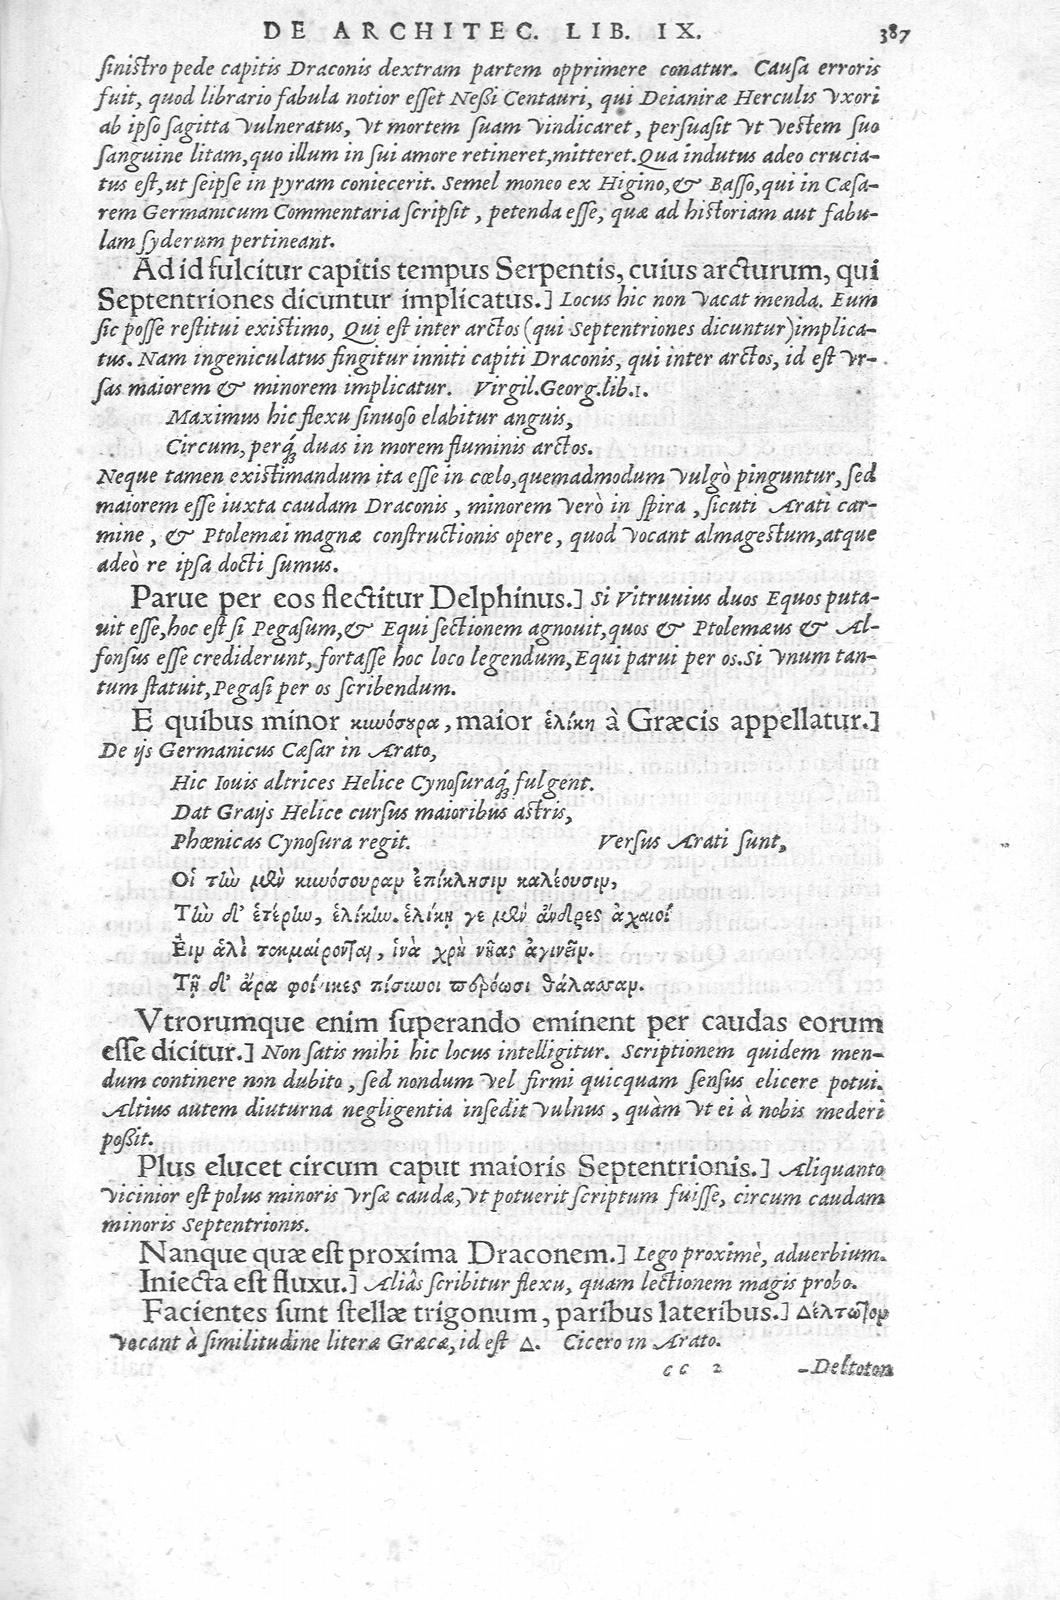 DE ARCHITEC. LIB. IX. 387
sinistro pede capitis Draconis dextram partem opprimere conatur. Causa erroris
fuit, quod librario fabula notior esset Neßi Centauri, qui Deianiræ Herculis vxori
ab ipso sagitta vulneratus, vt mortem suam vindicaret, persuasit vt vestem suo
sanguine litam, quo illum in sui amore retineret, mitteret. Qua indutus adeo crucia-
tus est, ut seipse in pyram coniecerit. Semel moneo ex Higino, & Basso, qui in Cæsa-
rem Germanicum Commentaria scripsit, petenda esse, quæ ad historiam aut fabu-
lam syderum pertineant.
Ad id fulcitur capitis tempus Serpentis, cuius arcturum, qui
Septentriones dicuntur implicatus.] Locus hic non vacat menda. Eum
sic posse restitui existimo, Qui est inter arctos (qui Septentriones dicuntur) implica-
tus. Nam ingeniculatus fingitur inniti capiti Draconis, qui inter arctos, id est vr-
sas maiorem & minorem implicatur. Virgil. Georg. lib. 1.
Maximus hic flexu sinuoso elabitur anguis,
Circum, perq́; duas in morem fluminis arctos.
Neque tamen existimandum ita esse in cœlo, quemadmodum vulgò pinguntur, sed
maiorem esse iuxta caudam Draconis, minorem verò in spira, sicuti Arati car-
mine, & Ptolemæi magnæ constructionis opere, quod vocant almagestum, atque
adeò re ipsa docti sumus.
Parue per eos flectitur Delphinus.] Si Vitruuius duos Equos puta-
uit esse, hoc est si Pegasum, & Equi sectionem agnouit, quos & Ptolemæus & Al-
fonsus esse crediderunt, fortasse hoc loco legendum, Equi parui per os. Si vnum tan-
tum statuit, Pegasi per os scribendum.
E quibus minor κυνόσουρα, maior ἑλίκη à Græcis appellatur.]
De ijs Germanicus Cæsar in Arato,
Hic Iouis altrices Helice Cynosuraq́; fulgent.
Dat Graijs Helice cursus maioribus astris,
Phœnicas Cynosura regit. Versus Arati sunt,
Οἱ τὼ μὲν κυνόσουραν ἐπίκλησιν καλέουσιν,
Τὼ δ' ἑτέρην, ἑλίκην. ἑλίκη γε μὲν ἄνδρες ἀχαιοὶ
Εἰν ἁλὶ τεκμαίρονται, ἱνὰ χρὴ νῆας ἀγινεῖν.
Τῇ δ' ἄρα φοίνικες πίσυνοι περόωσι θάλασσαν.
Vtrorumque enim superando eminent per caudas eorum
esse dicitur.] Non satis mihi hic locus intelligitur. Scriptionem quidem men-
dum continere non dubito, sed nondum vel firmi quicquam sensus elicere potui.
Altius autem diuturna negligentia insedit vulnus, quàm vt ei à nobis mederi
poßit.
Plus elucet circum caput maioris Septentrionis.] Aliquanto
vicinior est polus minoris vrsæ caudæ, vt potuerit scriptum fuisse, circum caudam
minoris Septentrionis.
Nanque quæ est proxima Draconem.] Lego proximè, aduerbium.
Iniecta est fluxu.] Aliàs scribitur flexu, quam lectionem magis probo.
Facientes sunt stellæ trigonum, paribus lateribus.] Δελτωτὸν
vocant à similitudine literæ Græcæ, id est Δ. Cicero in Arato.
cc 2 -Deltoton